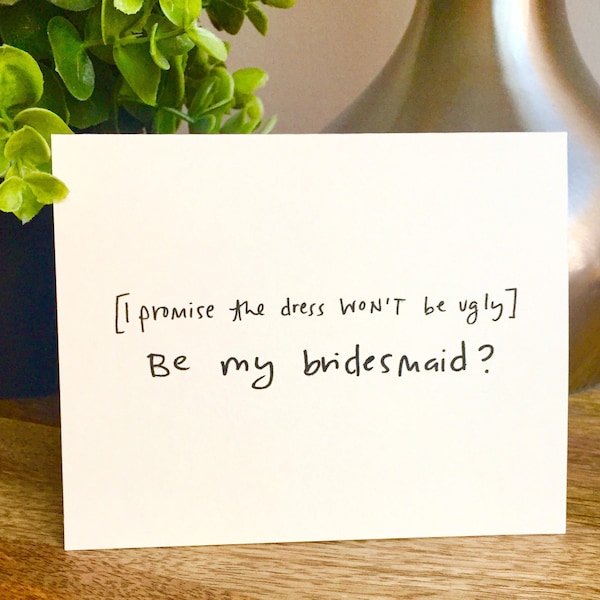 [I promise the dress WON'T be ugly]
Be my bridesmaid?